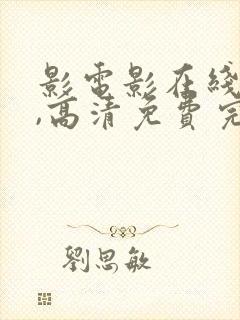 影電影在綫
,高清免費完
劉思敏